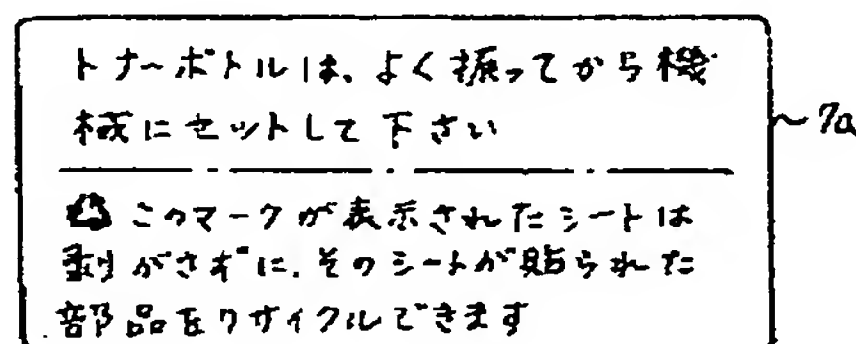 トナーボトルは、よく振ってから機
械にセットして下さい
~7a
♻このマークが表示されたシートは
剥がさずに、そのシートが貼られた
部品をリサイクルできます